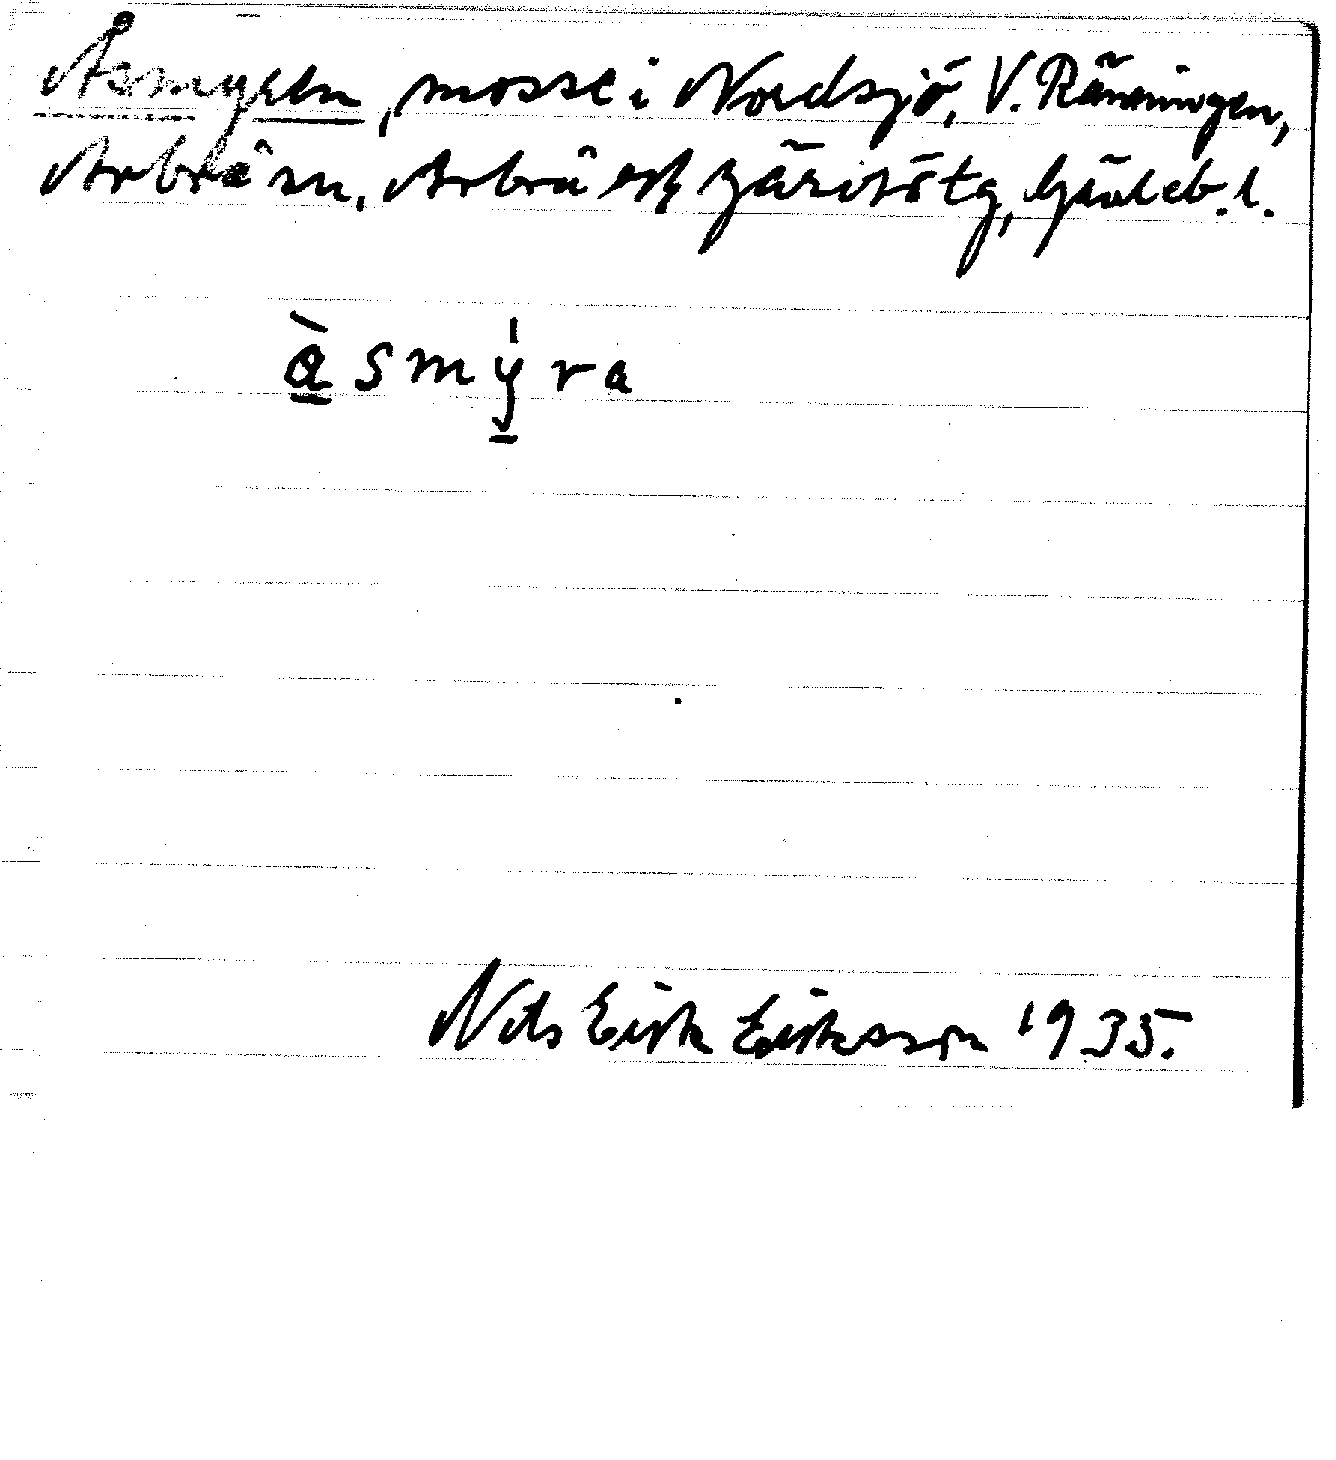 Åsmyren, mosse i Nordsjö, V. Ränningen,
Arbrå sn, Arbrå och Järvsö tg, Gävleb. l.
å̀smýra
Nils Erik Eriksson 1935.